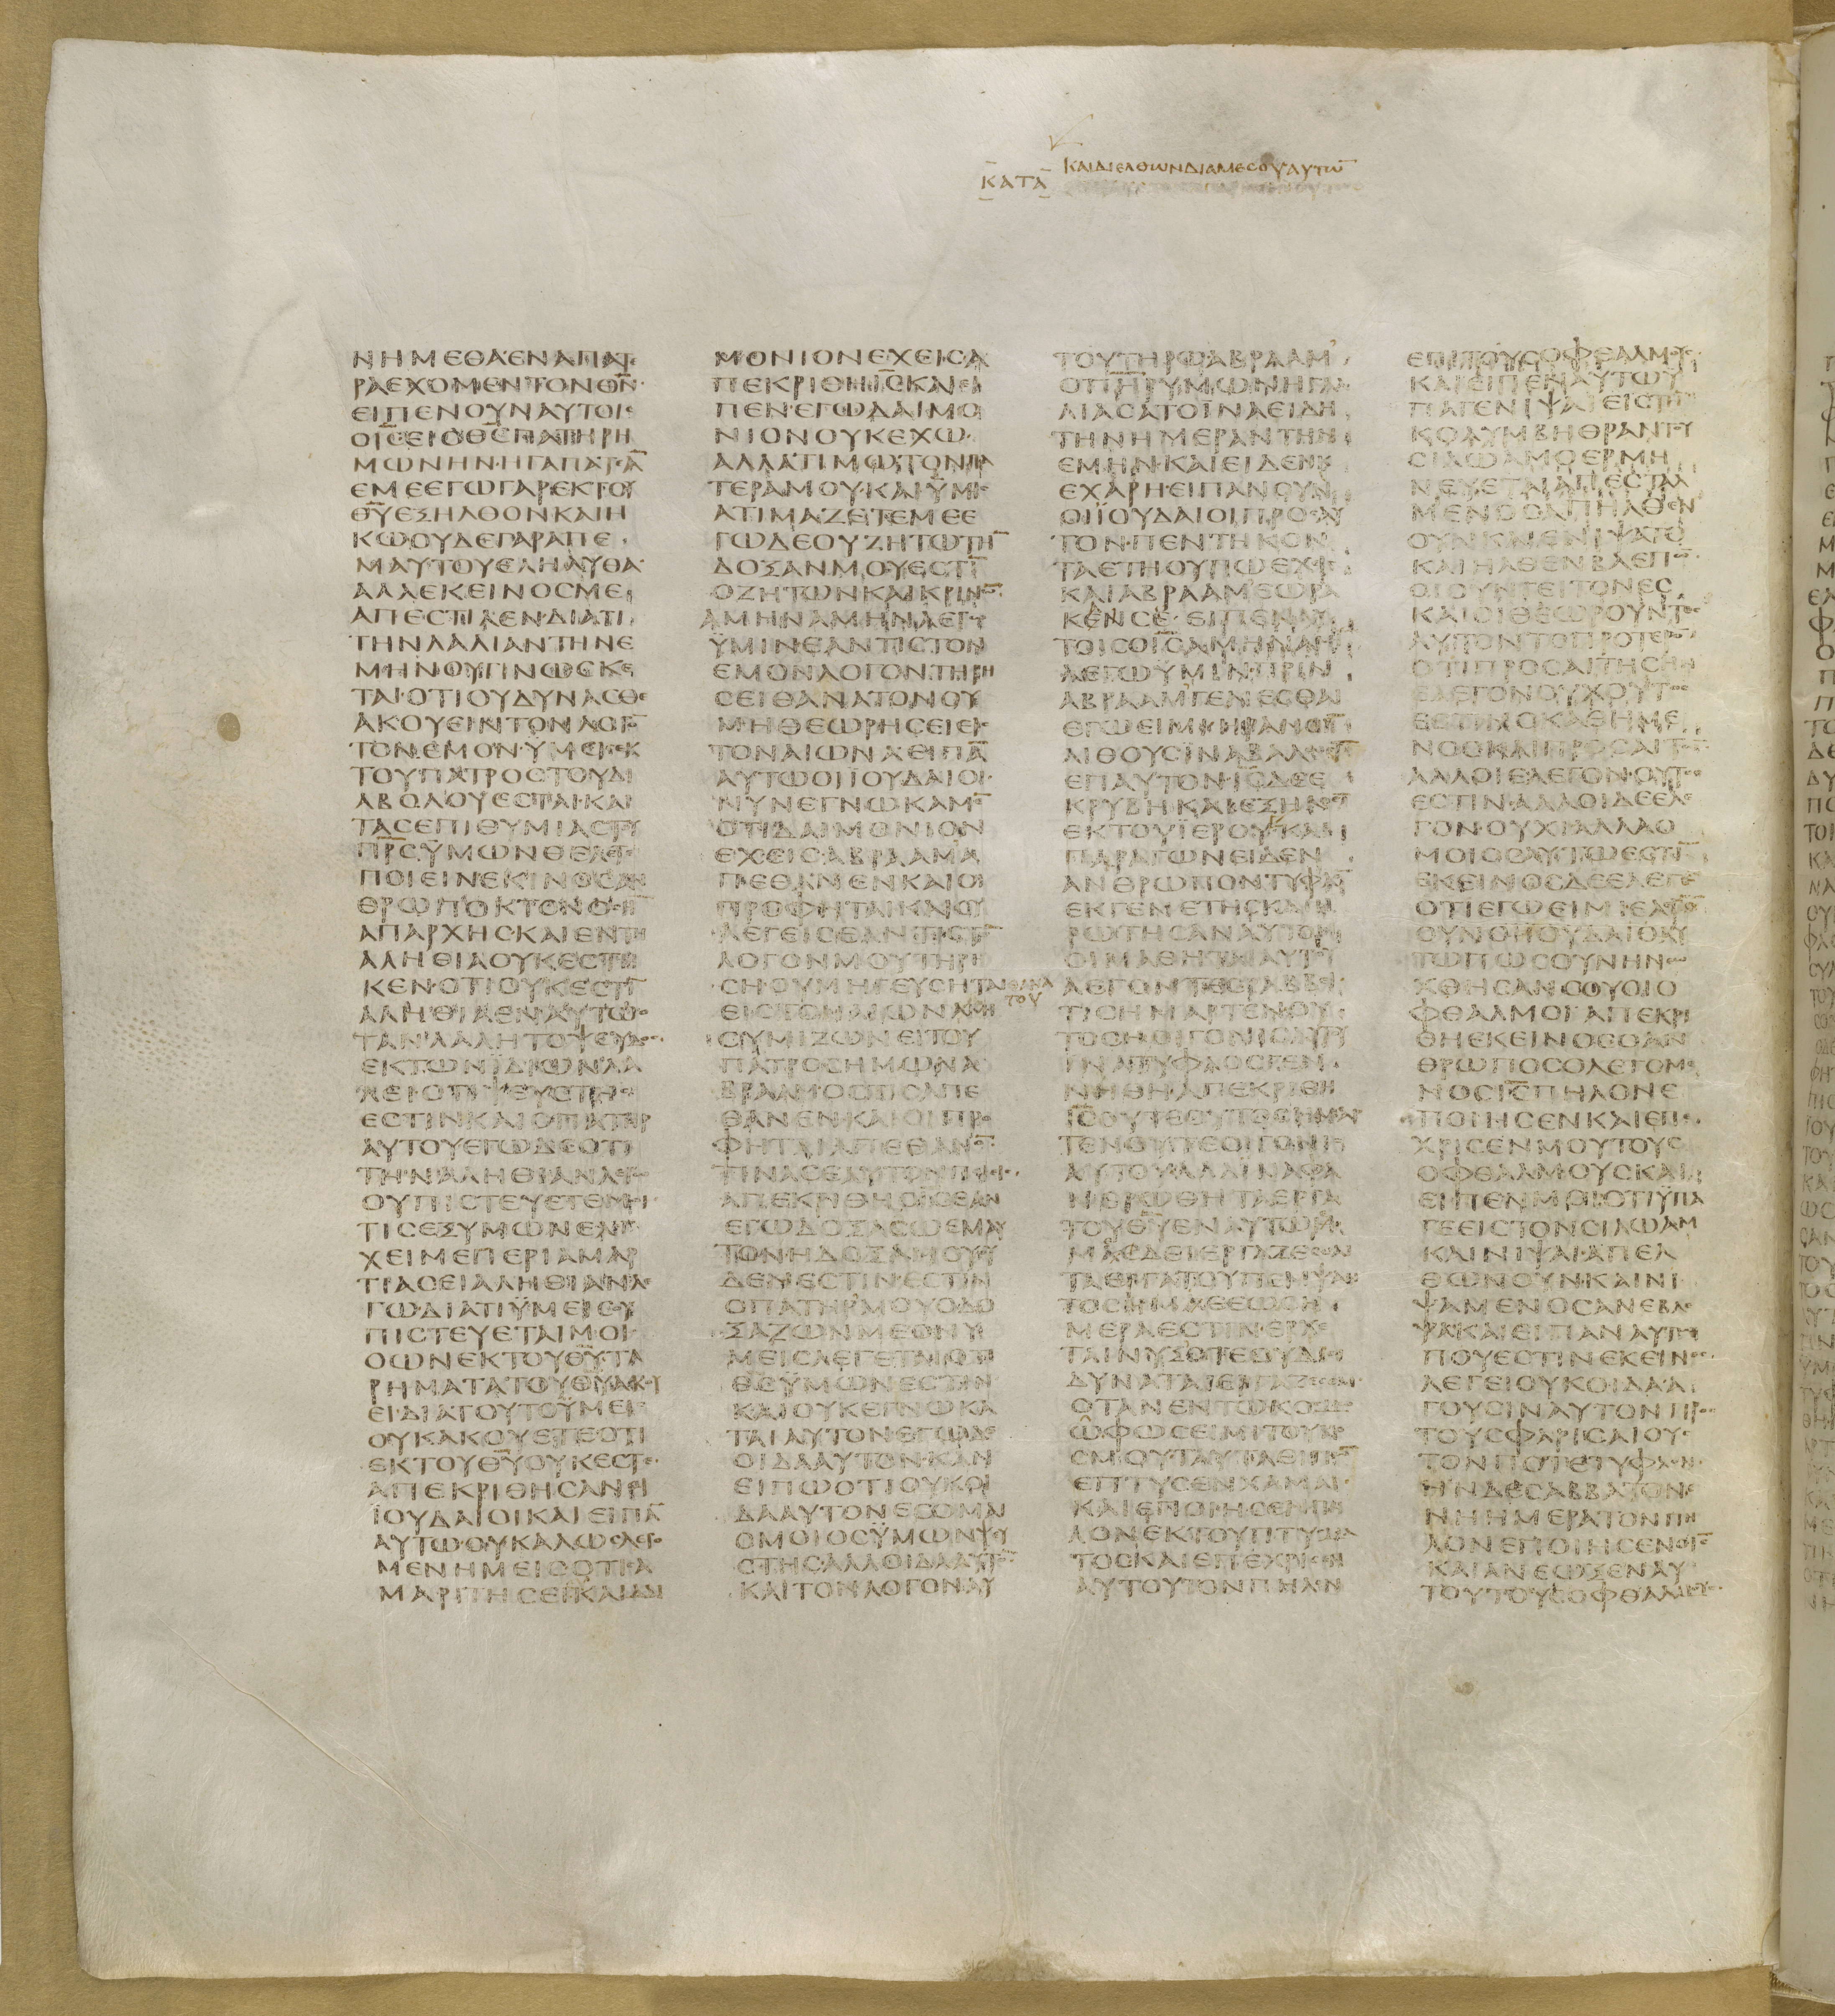 ΚΑΙΔΙΕΛΘΩΝΔΙΑΜΕϹΟΥΑΥΤΩ̅
ΚΑΤΑ
ΝΗΜΕΘΑΕΝΑΠΑΤΕ
ΡΑΕΧΟΜΕΝΤΟΝΘ̅Ν̅
ΕΙΠΕΝΟΥΝΑΥΤΟΙϹ
ΟΙ̅Ϲ̅ΕΙΟΘ̅Ϲ̅ΠΑΤΗΡΗ
ΜΩΝΗΝ·ΗΓΑΠΑΤΑ̅
ΕΜΕΕΓΩΓΑΡΕΚΤΟΥ
Θ̅Υ̅ΕΞΗΛΘΟΝΚΑΙΗ
ΚΩΟΥΔΕΓΑΡΑΠΕ
ΜΑΥΤΟΥΕΛΗΛΥΘΑ
ΑΛΛΕΚΕΙΝΟϹΜΕ
ΑΠΕϹΤΙΛΕΝ·ΔΙΑΤΙ
ΤΗΝΛΑΛΙΑΝΤΗΝΕ
ΜΗΝΟΥΓΙΝΩϹΚΕ
ΤΑΙ·ΟΤΙΟΥΔΥΝΑϹΘΕ
ΑΚΟΥΕΙΝΤΟΝΛΟΓΟ̅
ΤΟΝΕΜΟΝ·ΥΜΕΙϹΕΚ
ΤΟΥΠΑΤΡΟϹΤΟΥΔΙ
ΑΒΟΛΟΥΕϹΤΑΙ·ΚΑΙ
ΤΑϹΕΠΙΘΥΜΙΑϹΤΟΥ
Π̅Ρ̅Ϲ̅ΫΜΩΝΘΕΛΕΤΕ
ΠΟΙΕΙΝ·ΕΚΙΝΟϹΑΝ
ΘΡΩΠΟΚΤΟΝΟϹΗ̅
ΑΠΑΡΧΗϹΚΑΙΕΝΤΗ
ΑΛΗΘΙΑΟΥΚΕϹΤΗ
ΚΕΝ·ΟΤΙΟΥΚΕϹΤΙ̅
ΑΛΗΘΙΑΕΝΑΥΤΩ·
ΤΑΝΛΑΛΗΤΟΨΕΥΔΟϹ
ΕΚΤΩΝΪΔΙΩΝΛΑ
ΛΕΙΟΤΙΨΕΥϹΤΗϹ
ΕϹΤΙΝΚΑΙΟΠΑΤΗΡ
ΑΥΤΟΥΕΓΩΔΕΟΤΙ
ΤΗΝΑΛΗΘΙΑΝΛΕΓΩ
ΟΥΠΙϹΤΕΥΕΤΕΜΟΙ
ΤΙϹΕΞΥΜΩΝΕΛΕΓ
ΧΕΙΜΕΠΕΡΙΑΜΑΡ
ΤΙΑϹΕΙΑΛΗΘΙΑΝΛΕ
ΓΩΔΙΑΤΙΫΜΕΙϹΟΥ
ΠΙϹΤΕΥΕΤΑΙΜΟΙ·
ΟΩΝΕΚΤΟΥΘ̅Υ̅·ΤΑ
ΡΗΜΑΤΑΤΟΥΘ̅Υ̅ΑΚΟΥ
ΕΙ·ΔΙΑΤΟΥΤΟΫΜΕΙϹ
ΟΥΚΑΚΟΥΕΤΕΟΤΙ
ΕΚΤΟΥΘ̅Υ̅ΟΥΚΕϹΤΕ·
ΑΠΕΚΡΙΘΗϹΑΝΟΙ
ΪΟΥΔΑΙΟΙΚΑΙΕΙΠΑ̅
ΑΥΤΩ·ΟΥΚΑΛΩϹΛΕΓΟ
ΜΕΝΗΜΕΙϹΟΤΙϹΑ
ΜΑΡΙΤΗϹΕΙΚΑΙΔΑΙ
ΜΟΝΙΟΝΕΧΕΙϹΑ
ΠΕΚΡΙΘΗΙ̅Ϲ̅ΚΑΙΕΙ
ΠΕΝ·ΕΓΩΔΑΙΜΟ
ΝΙΟΝΟΥΚΕΧΩ·
ΑΛΛΑΤΙΜΩΤΟΝΠΑ
ΤΕΡΑΜΟΥ·ΚΑΙΫΜΙϹ
ΑΤΙΜΑΖΕΤΕΜΕΕ
ΓΩΔΕΟΥΖΗΤΩΤΗ̅
ΔΟΞΑΝΜΟΥΕϹΤΙ̅
ΟΖΗΤΩΝΚΑΙΚΡΙΝΩ̅
ΑΜΗΝΑΜΗΝΛΕΓΩ
ΫΜΙΝ·ΕΑΝΤΙϹΤΟΝ
ΕΜΟΝΛΟΓΟΝΤΗΡΗ
ϹΕΙΘΑΝΑΤΟΝΟΥ
ΜΗΘΕΩΡΗϹΕΙΕΙϹ
ΤΟΝΑΙΩΝΑ·ΕΙΠΑ̅
ΑΥΤΩΟΙΪΟΥΔΑΙΟΙ·
ΝΥΝΕΓΝΩΚΑΜΕ̅
ΟΤΙΔΑΙΜΟΝΙΟΝ
ΕΧΕΙϹ·ΑΒΡΑΑΜΑ
ΠΕΘΑΝΕΝΚΑΙΟΙ
ΠΡΟΦΗΤΑΙΚΑΙϹΥ
ΛΕΓΕΙϹΕΑΝΤΙϹΤΟ̅
ΛΟΓΟΝΜΟΥΤΗΡΗ
ϹΗ·ΟΥΜΗΓΕΥϹΗΤΑΙΘΑΝΑ
ΤΟΥ
ΕΙϹΤΟΝΑΙΩΝΑΜΗ
ϹΥΜΙΖΩΝΕΙΤΟΥ
ΠΑΤΡΟϹΗΜΩΝΑ
ΒΡΑΑΜ·ΟϹΤΙϹΑΠΕ
ΘΑΝΕΝ·ΚΑΙΟΙΠΡΟ
ΦΗΤΑΙΑΠΕΘΑΝΟ̅·
ΤΙΝΑϹΕΑΥΤΟΝΠΟΙΕΙϹ·
ΑΠΕΚΡΙΘΗΟΙ̅Ϲ̅ΕΑΝ
ΕΓΩΔΟΞΑϹΩΕΜΑΥ
ΤΟΝ·ΗΔΟΞΑΜΟΥΟΥ
ΔΕΝΕϹΤΙΝ·ΕϹΤΙΝ
ΟΠΑΤΗΡΜΟΥΟΔΟ
ΞΑΖΩΝΜΕΟΝΥ
ΜΕΙϹΛΕΓΕΤΑΙΟΤΙ
Θ̅Ϲ̅ΫΜΩΝΕϹΤΙΝ
ΚΑΙΟΥΚΕΓΝΩΚΑ
ΤΑΙΑΥΤΟΝ·ΕΓΩΔΕ
ΟΙΔΑΑΥΤΟΝ·ΚΑΝ
ΕΙΠΩΟΤΙΟΥΚΟΙ
ΔΑΑΥΤΟΝΕϹΟΜΑΙ
ΟΜΟΙΟϹΫΜΩΝΨΕΥ
ϹΤΗϹ·ΑΛΛΟΙΔΑΑΥΤΟ̅
ΚΑΙΤΟΝΛΟΓΟΝΑΥ
ΤΟΥΤΗΡΩΑΒΡΑΑΜ
ΟΠ̅Η̅Ρ̅ΥΜΩΝΗΓΑΛ
ΛΙΑϹΑΤΟΪΝΑΕΙΔΗ
ΤΗΝΗΜΕΡΑΝΤΗΝ
ΕΜΗΝ·ΚΑΙΕΙΔΕΝΚΑΙ
ΕΧΑΡΗ·ΕΙΠΑΝΟΥΝ
ΟΙΪΟΥΔΑΙΟΙΠΡΟϹΑΥ
ΤΟΝ·ΠΕΝΤΗΚΟΝ
ΤΑΕΤΗΟΥΠΩΕΧΕΙϹ
ΚΑΙΑΒΡΑΑΜΕΩΡΑ
ΚΕΝϹΕ·ΕΙΠΕΝΑΥ
ΤΟΙϹΟΙ̅Ϲ̅ΑΜΗΝΑΜΗ̅
ΛΕΓΩΫΜΙΝ·ΠΡΙΝ
ΑΒΡΑΑΜΓΕΝΕϹΘΑΙ
ΕΓΩΕΙΜΙ·ΗΡΑΝΟΥ̅
ΛΙΘΟΥϹΪΝΑΒΑΛΩϹΙ̅
ΕΠΑΥΤΟΝ·Ι̅Ϲ̅ΔΕΕ
ΚΡΥΒΗ·ΚΑΙΕΞΗΛΘΕ̅
ΕΚΤΟΥΪΕΡΟΥ·ΚΑΙ
ΠΑΡΑΓΩΝΕΙΔΕΝ
ΑΝΘΡΩΠΟΝΤΥΦΛΟ̅
ΕΚΓΕΝΕΤΗϹΚΑΙΗ
ΡΩΤΗϹΑΝΑΥΤΟΝ
ΟΙΜΑΘΗΤΑΙΑΥΤΟΥ
ΛΕΓΟΝΤΕϹΡΑΒΒΙ·
ΤΙϹΗΜΑΡΤΕΝΟΥ
ΤΟϹΗΟΙΓΟΝΙϹΑΥΤΟΥ
ΙΝΑΤΥΦΛΟϹΓΕΝ
ΝΗΘΗΑΠΕΚΡΙΘΗ
Ι̅Ϲ̅ΟΥΤΕΟΥΤΟϹΗΜΑΡ
ΤΕΝΟΥΤΕΟΙΓΟΝΙϹ
ΑΥΤΟΥΑΛΛΙΝΑΦΑ
ΝΕΡΩΘΗΤΑΕΡΓΑ
ΤΟΥΘ̅Υ̅ΕΝΑΥΤΩΗ
ΜΑϹΔΕΙΕΡΓΑΖΕϹΘΑΙ
ΤΑΕΡΓΑΤΟΥΠΕΜΨΑΝ
ΤΟϹΗΜΑϹΕΩϹΗ
ΜΕΡΑΕϹΤΙΝ·ΕΡΧΕ
ΤΑΙΝΥΞΟΤΕΟΥΔΙϹ
ΔΥΝΑΤΑΙΕΡΓΑΖΕϹΘΑΙ·
ΟΤΑΝΕΝΤΩΚΟϹΜΩ
ΩΦΩϹΕΙΜΙΤΟΥΚΟ
ϹΜΟΥΤΑΥΤΑΕΙΠΩ̅
ΕΠΤΥϹΕΝΧΑΜΑΙ·
ΚΑΙΕΠΟΙΗϹΕΝΠΗ
ΛΟΝΕΚΤΟΥΠΤΥϹΜΑ
ΤΟϹΚΑΙΕΠΕΧΡΙϹΕΝ
ΑΥΤΟΥΤΟΝΠΗΛΟΝ
ΕΠΙΤΟΥϹΟΦΘΑΛΜΟΥϹ
ΚΑΙΕΙΠΕΝΑΥΤΩΥ
ΠΑΓΕΝΙΨΑΙΕΙϹΤΗ̅
ΚΟΛΥΜΒΗΘΡΑΝΤΟΥ
ϹΙΛΩΑΜΟΕΡΜΗ
ΝΕΥΕΤΑΙΑΠΕϹΤΑΛ
ΜΕΝΟϹΑΠΗΛΘΕΝ
ΟΥΝΚΑΙΕΝΙΨΑΤΟ
ΚΑΙΗΛΘΕΝΒΛΕΠΩ̅
ΟΙΟΥΝΓΕΙΤΟΝΕϹ
ΚΑΙΟΙΘΕΩΡΟΥΝΤΕϹ
ΑΥΤΟΝΤΟΠΡΟΤΕΡΟ̅
ΟΤΙΠΡΟϹΑΙΤΗϹΗΝ
ΕΛΕΓΟΝΟΥΧΟΥΤΟϹ
ΕϹΤΙΝΟΚΑΘΗΜΕ
ΝΟϹΚΑΙΠΡΟϹΑΙΤΩ̅
ΑΛΛΟΙΕΛΕΓΟΝ·ΟΥΤΟϹ
ΕϹΤΙΝ·ΑΛΛΟΙΔΕΕΛΕ
ΓΟΝ·ΟΥΧΙΑΛΛΑΟ
ΜΟΙΟϹΑΥΤΩΕϹΤΙ̅
ΕΚΕΙΝΟϹΔΕΕΛΕΓΕ̅
ΟΤΙΕΓΩΕΙΜΙΕΛΕΓΟ̅
ΟΥΝΟΙΪΟΥΔΑΙΟΙΑΥ
ΤΩΠΩϹΟΥΝΗΝΕΩ
ΧΘΗϹΑΝϹΟΥΟΙΟ
ΦΘΑΛΜΟΙΑΠΕΚΡΙ
ΘΗΕΚΕΙΝΟϹΟΑΝ
ΘΡΩΠΟϹΟΛΕΓΟΜΕ
ΝΟϹΙ̅Ϲ̅ΠΗΛΟΝΕ
ΠΟΙΗϹΕΝΚΑΙΕΠΕ
ΧΡΙϹΕΝΜΟΥΤΟΥϹ
ΟΦΘΑΛΜΟΥϹΚΑΙ
ΕΙΠΕΝΜΟΙΟΤΙΫΠΑ
ΓΕΕΙϹΤΟΝϹΙΛΩΑΜ
ΚΑΙΝΙΨΑΙ·ΑΠΕΛ
ΘΩΝΟΥΝΚΑΙΝΙ
ΨΑΜΕΝΟϹΑΝΕΒΛΕ
ΨΑΚΑΙΕΙΠΑΝΑΥΤΩ
ΠΟΥΕϹΤΙΝΕΚΕΙΝΟϹ·
ΛΕΓΕΙΟΥΚΟΙΔΑ·Α
ΓΟΥϹΙΝΑΥΤΟΝΠΡΟϹ
ΤΟΥϹΦΑΡΙϹΑΙΟΥϹ
ΤΟΝΠΟΤΕΤΥΦΛΟΝ·
ΗΝΔΕϹΑΒΒΑΤΟΝΕ
ΝΗΗΜΕΡΑΤΟΝΠΗ
ΛΟΝΕΠΟΙΗϹΕΝΟΙ̅Ϲ̅
ΚΑΙΑΝΕΩΞΕΝΑΥ
ΤΟΥΤΟΥϹΟΦΘΑΛΜΟΥϹ·